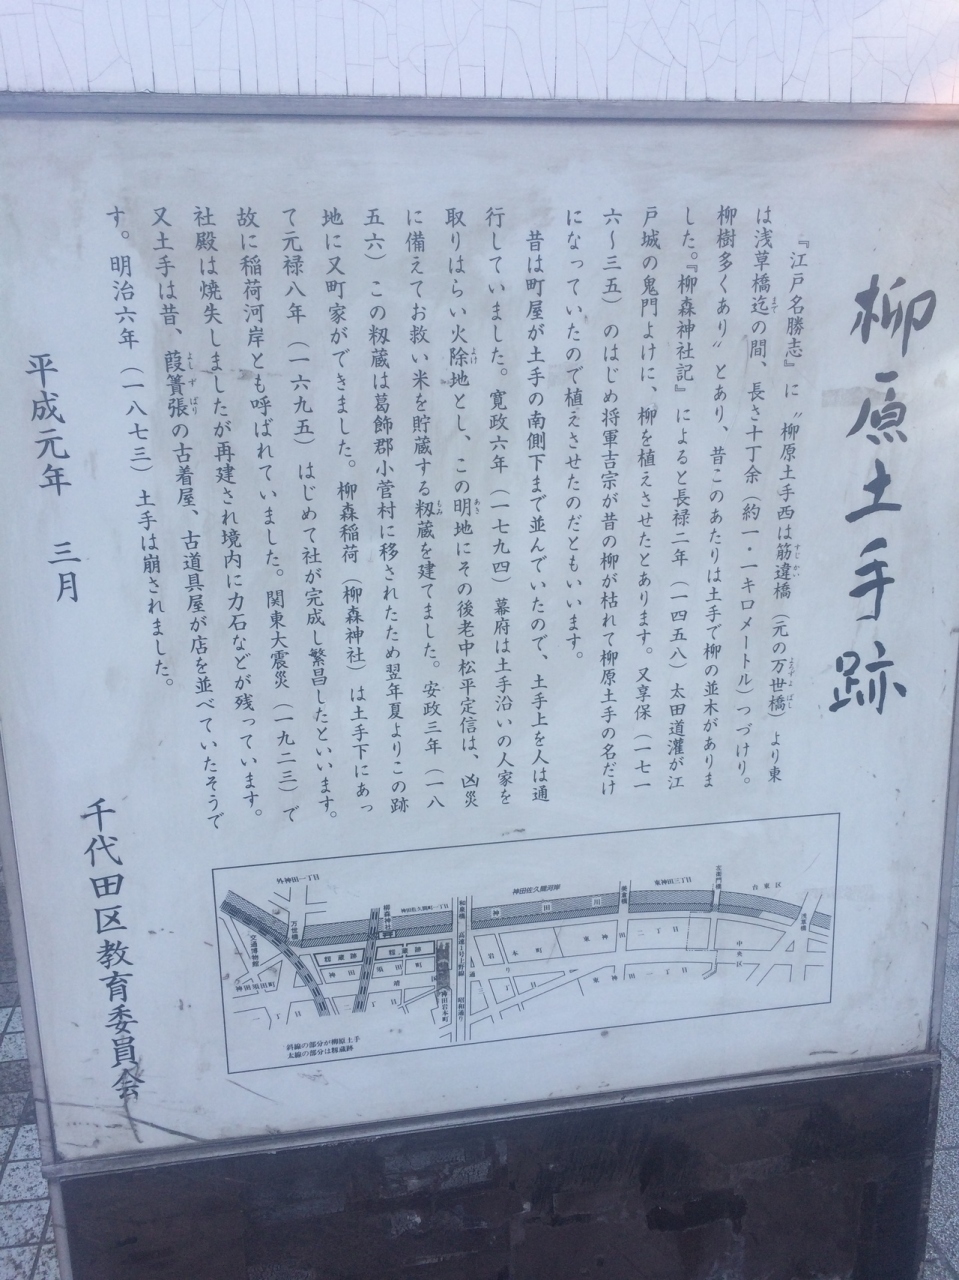 柳原土手跡
『江戸名勝志』に〝柳原土手西は筋違橋（元の万世橋）より東
は浅草橋迄の間、長さ十丁余（約一・一キロメートル）つづけり。
柳樹多くあり〟とあり、昔このあたりは土手で柳の並木がありま
した。『柳森神社記』によると長禄二年（一四五八）太田道灌が江
戸城の鬼門よけに、柳を植えさせたとあります。又享保（一七一
六〜三五）のはじめ将軍吉宗が昔の柳が枯れて柳原土手の名だけ
になっていたので植えさせたのだともいいます。
昔は町屋が土手の南側下まで並んでいたので、土手上を人は通
行していました。寛政六年（一七九四）幕府は土手沿いの人家を
取りはらい火除地とし、この明地にその後老中松平定信は、凶災
に備えてお救い米を貯蔵する籾蔵を建てました。安政三年（一八
五六）この籾蔵は葛飾郡小菅村に移されたため翌年夏よりこの跡
地に又町家ができました。柳森稲荷（柳森神社）は土手下にあっ
て元禄八年（一六九五）はじめて社が完成し繁昌したといいます。
故に稲荷河岸とも呼ばれていました。関東大震災（一九二三）で
社殿は焼失しましたが再建され境内に力石などが残っています。
又土手は昔、葭簀張の古着屋、古道具屋が店を並べていたそうで
す。明治六年（一八七三）土手は崩されました。
平成元年 三月
千代田区教育委員会
外神田一丁目
万世橋
交通博物館
神田須田町
柳森神社
神田佐久間町一丁目
籾蔵跡
籾蔵跡
神田須田町
和泉橋
高速1号上野線
昭和通り
神田岩本町
神田佐久間河岸
神田川
美倉橋
東神田三丁目
左衛門橋
台東区
浅草橋
岩本町
東神田二丁目
中央区
東神田一丁目
斜線の部分が柳原土手
太線の部分は籾蔵跡